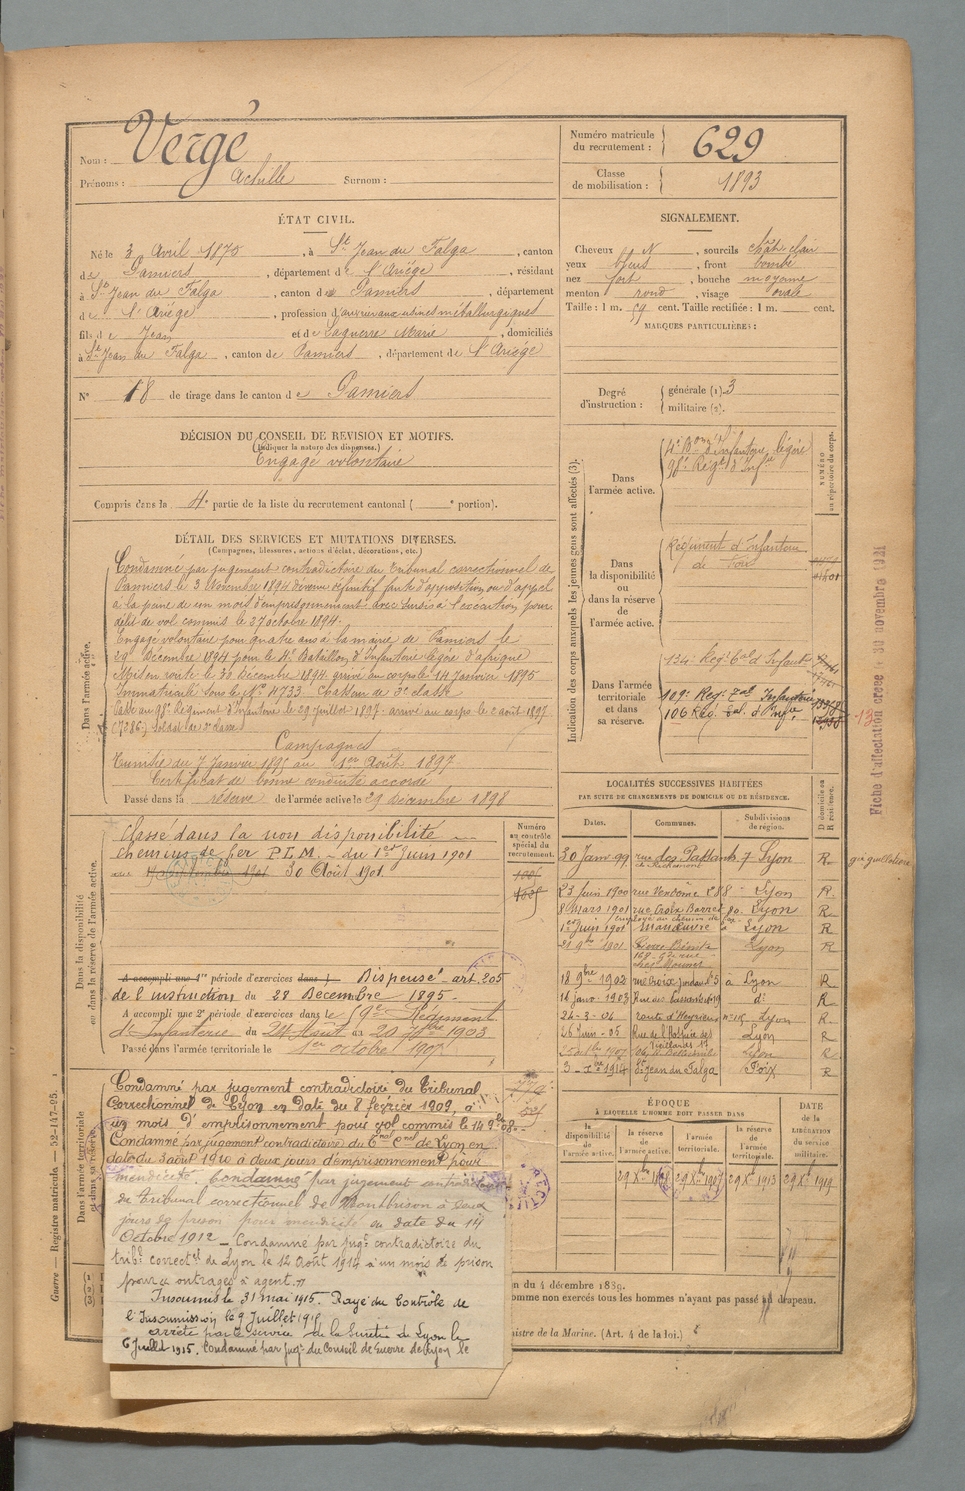 Nom : Vergé
Prénoms : Achille Surnom :
Numéro matricule du recrutement : 629
Classe de mobilisation : 1893
ÉTAT CIVIL.
Né le 3 Avril 1870, à St Jean du Falga, canton
de Pamiers, département de l'Ariége, résidant
à St Jean du Falga, canton de Pamiers, département
de l'Ariége, profession d'ouvrier aux usines métallurgiques
fils de Jean et de Laguerre Marie, domiciliés
à St Jean du Falga, canton de Pamiers, département de l'Ariége
N° 18 de tirage dans le canton de Pamiers
SIGNALEMENT.
Cheveux N, sourcils chât. clair
yeux bleus, front bombé
nez fort, bouche moyenne
menton rond, visage ovale
Taille : 1 m. 59 cent. Taille rectifiée : 1 m. cent.
MARQUES PARTICULIÈRES :
Degré d'instruction : générale (1). 3
militaire (2).
DÉCISION DU CONSEIL DE REVISION ET MOTIFS.
(Indiquer la nature des dispenses.)
Engagé volontaire
Compris dans la 4e partie de la liste du recrutement cantonal ( e portion).
DÉTAIL DES SERVICES ET MUTATIONS DIVERSES.
(Campagnes, blessures, actions d'éclat, décorations, etc.)
Dans l'armée active.
Condamné par jugement contradictoire du Tribunal correctionnel de
Pamiers le 3 Novembre 1894 devenu définitif faute d'opposition ou d'appel
à la peine de un mois d'emprisonnement avec sursis à l'exécution pour
délit de vol commis le 27 octobre 1894.
Engagé volontaire pour quatre ans à la mairie de Pamiers le
29 Décembre 1894 pour le 4e Bataillon d'Infanterie légère d'afrique
Mis en route le 30 Décembre 1894 arrivé au corps le 14 Janvier 1895
Immatriculé sous le N° 4733. Chasseur de 2e classe
Passé au 98e Régiment d'Infanterie le 29 juillet 1897. arrivé au corps le 2 août 1897
(7286) Soldat de 2e classe
Campagnes
Tunisie du 7 Janvier 1895 au 1er Août 1897
Certificat de bonne conduite accordé
Passé dans la réserve de l'armée active le 29 décembre 1898
Indication des corps auxquels les jeunes gens sont affectés (3).
NUMÉRO au répertoire du corps.
Dans l'armée active.
4e Bon d'Infanterie légère
98e Régt d'Infie
Dans la disponibilité ou dans la réserve de l'armée active.
Régiment d'Infanterie
de Foix
Dans l'armée territoriale et dans sa réserve.
124e Regt tal d'Infant
109e Reg. Tal Infanterie
106 Reg. tal. d'Infie
Fiche d'affectation créée le 30 novembre 1921
Dans la disponibilité ou dans la réserve de l'armée active.
Numéro au contrôle spécial du recrutement.
Classé dans la non disponibilité
chemins de fer P.L.M. - du 1er Juin 1901
au 30 Août 1901.
A accompli une 1re période d'exercices dans Dispensé art. 205
de l'instruction du 28 Decembre 1895.
A accompli une 2e période d'exercices dans le 9e Régiment
d'Infanterie du 24 Août au 20 7bre 1903
Passé dans l'armée territoriale le 1er octobre 1907
LOCALITÉS SUCCESSIVES HABITÉES
PAR SUITE DE CHANGEMENTS DE DOMICILE OU DE RÉSIDENCE.
Dates. Communes. Subdivisions de région. D domicile ou R résidence.
30 Janv 99 rue des Passants 7 Lyon R.
23 Juin 1900 rue Vendôme 288 Lyon R
8 Mars 1901 rue Croix Barret 80. Lyon R.
employé au chemin de fer
1er Juin 1901 Manœuvre à Lyon R
21 9bre 1901 Pierre Bénite Lyon R
18 9bre 1902 à Lyon R
14 janv. 1903 Rue des Passants n° 19 d° R
24-3-04 route d'Heyrieux Lyon R.
26 Juin-05 Lyon R
Lyon R
3 - Xbre 1914 St Jean du Falga Foix R
ÉPOQUE
À LAQUELLE L'HOMME DOIT PASSER DANS
DATE de la LIBÉRATION du service militaire.
la disponibilité de l'armée active. la réserve de l'armée active. l'armée territoriale. la réserve de l'armée territoriale.
29 Xbre 1898 29 Xbre 1907 29 Xbre 1913 29 Xbre 1919
Dans l'armée territoriale et dans sa réserve.
Condamné par jugement contradictoire du Tribunal
Correctionnel de Lyon en Date du 8 février 1909, à
un mois d'emprisonnement pour vol commis le 14 Xbre 08.
Condamné par jugement contradictoire du Tnal Cnel de Lyon en
date du 3 août 1910 à deux jours d'emprisonnement pour
mendicité. Condamné par jugement contradictoire
du tribunal correctionnel de Montbrison à deux
jours de prison pour mendicité en date du 14
Octobre 1912 - Condamné par jugt contradictoire du
tribl correctel de Lyon le 12 Août 1914 à un mois de prison
pour outrages à agent.
Insoumis le 31 mai 1915. Rayé du Contrôle de
l'Insoumission le 9 Juillet 1915
arrêté par le service de la Sureté de Lyon le
6 Juillet 1915. Condamné par jugt du Conseil de Guerre de Lyon le
on du 4 décembre 1889.
omme non exercés tous les hommes n'ayant pas passé au drapeau.
nistre de la Marine. (Art. 4 de la loi.)
Guerre — Registre matricule 52-147-95.